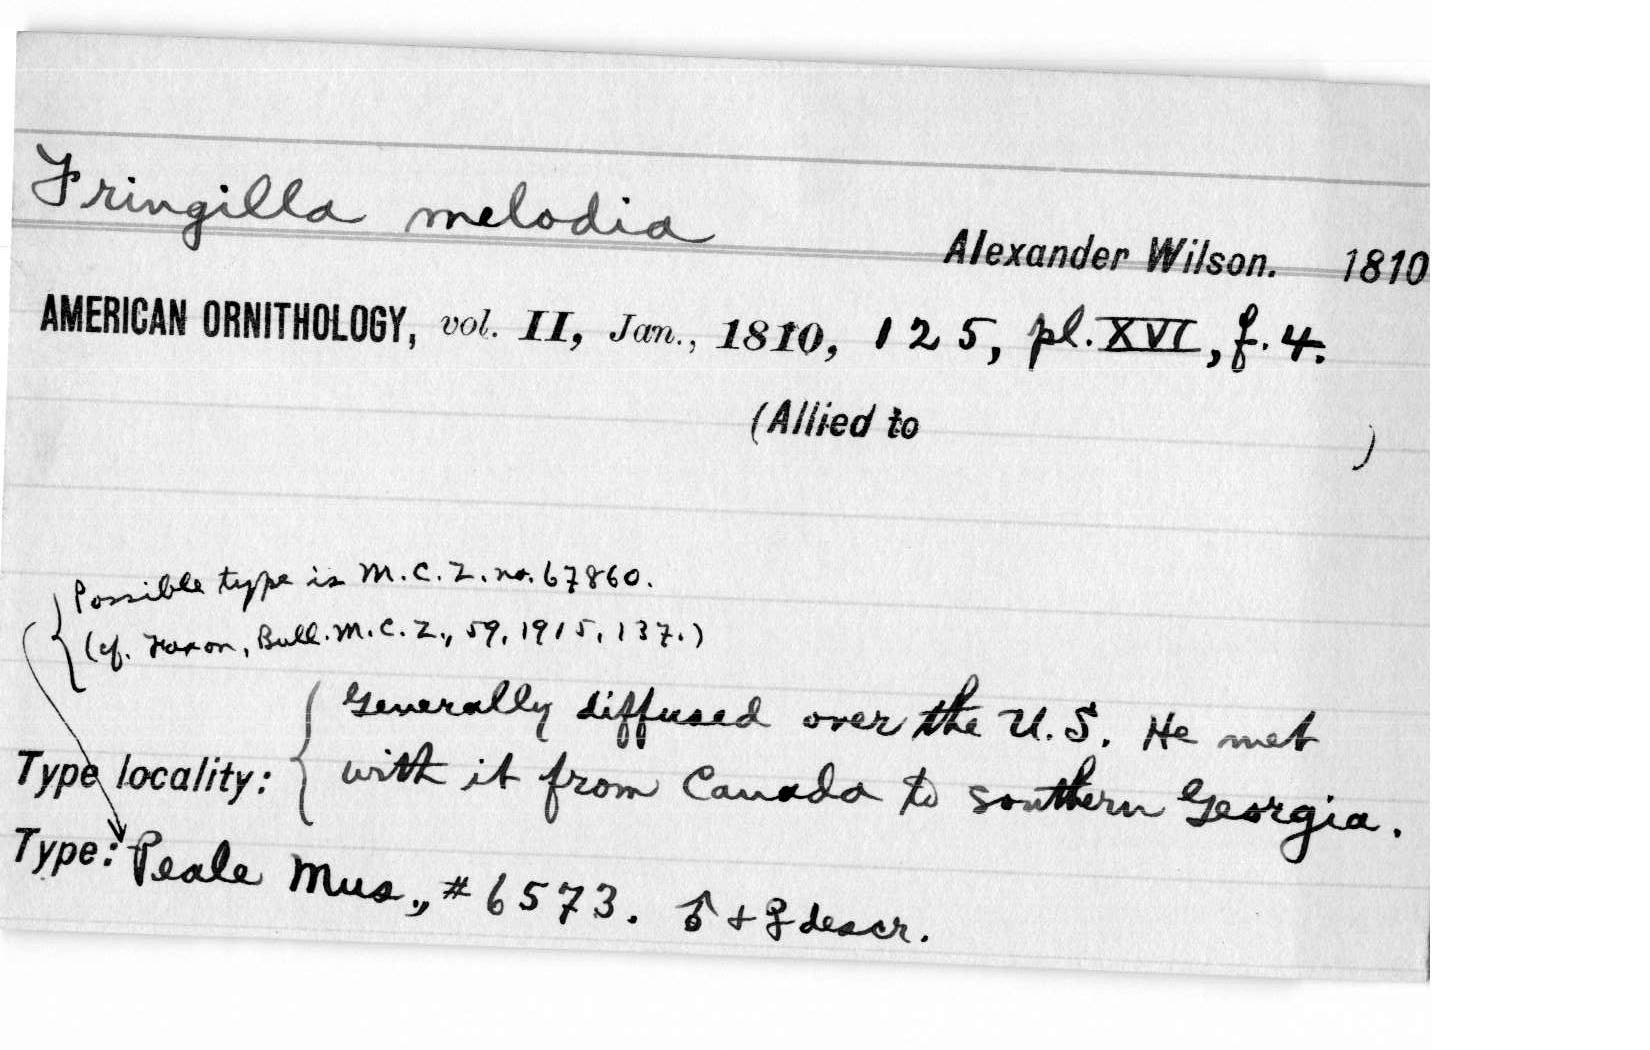 Fringilla melodia
Alexander Wilson. 1810
AMERICAN ORNITHOLOGY, vol. II, Jan., 1810, 125, pl. XVI, f. 4.
(Allied to )
Possible type is M.C.Z. no. 67860.
(cf. Faxon, Bull. M.C.Z., 59, 1915, 137.)
Generally diffused over the U.S. He met
Type locality: with it from Canada to southern Georgia.
Type: Peale Mus., # 6573. ♂ + ♀ descr.